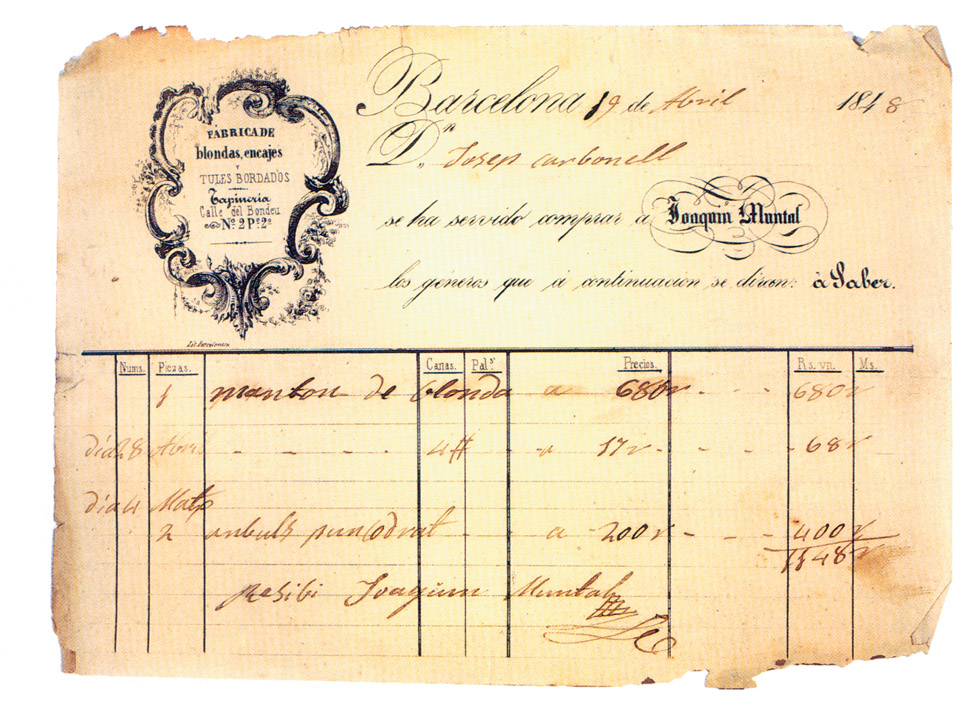 FABRICA DE
blondas, encajes
Y
TULES BORDADOS
Tapineria
Calle del Bondeu
Nº 2 Pº 2º
Barcelona 19 de Abril 1848
Dn. Josep Carbonell
se ha servido comprar á Joaquin Muntal
los géneros que á continuacion se diran: á Saber.
Nums. Piezas. Canas. Pals. Precios. Rs. vn. Ms.
1 manton de blonda a 680 r 680 r
dia 28 Abril 4 a 17 r 68 r
dia 4
2 a 200 r 400 r
1148 r
Resibi Joaquim Muntal